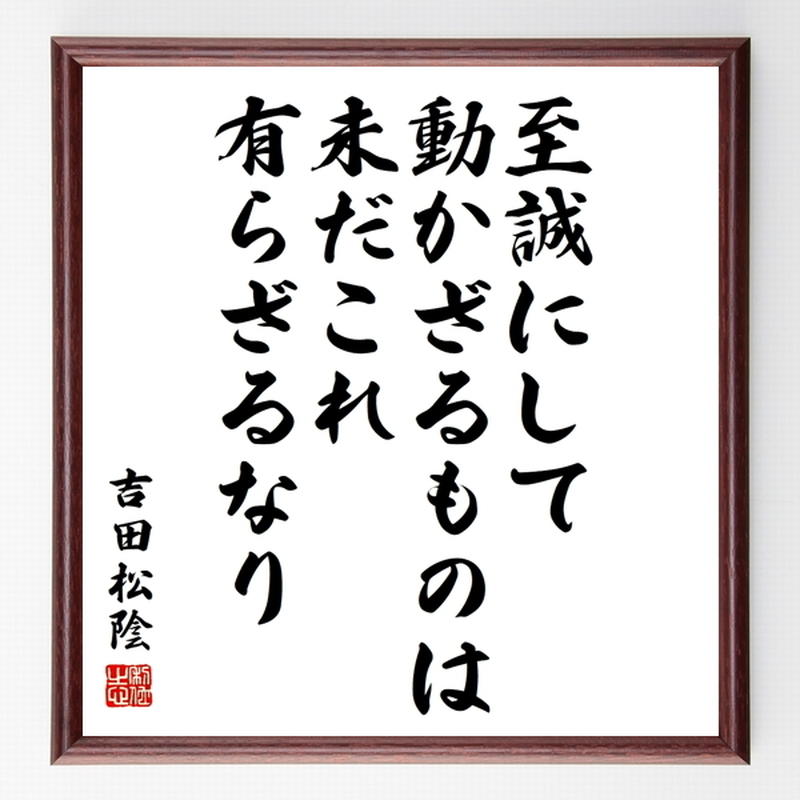 至誠にして
動かざるものは
未だこれ
有らざるなり
吉田松陰